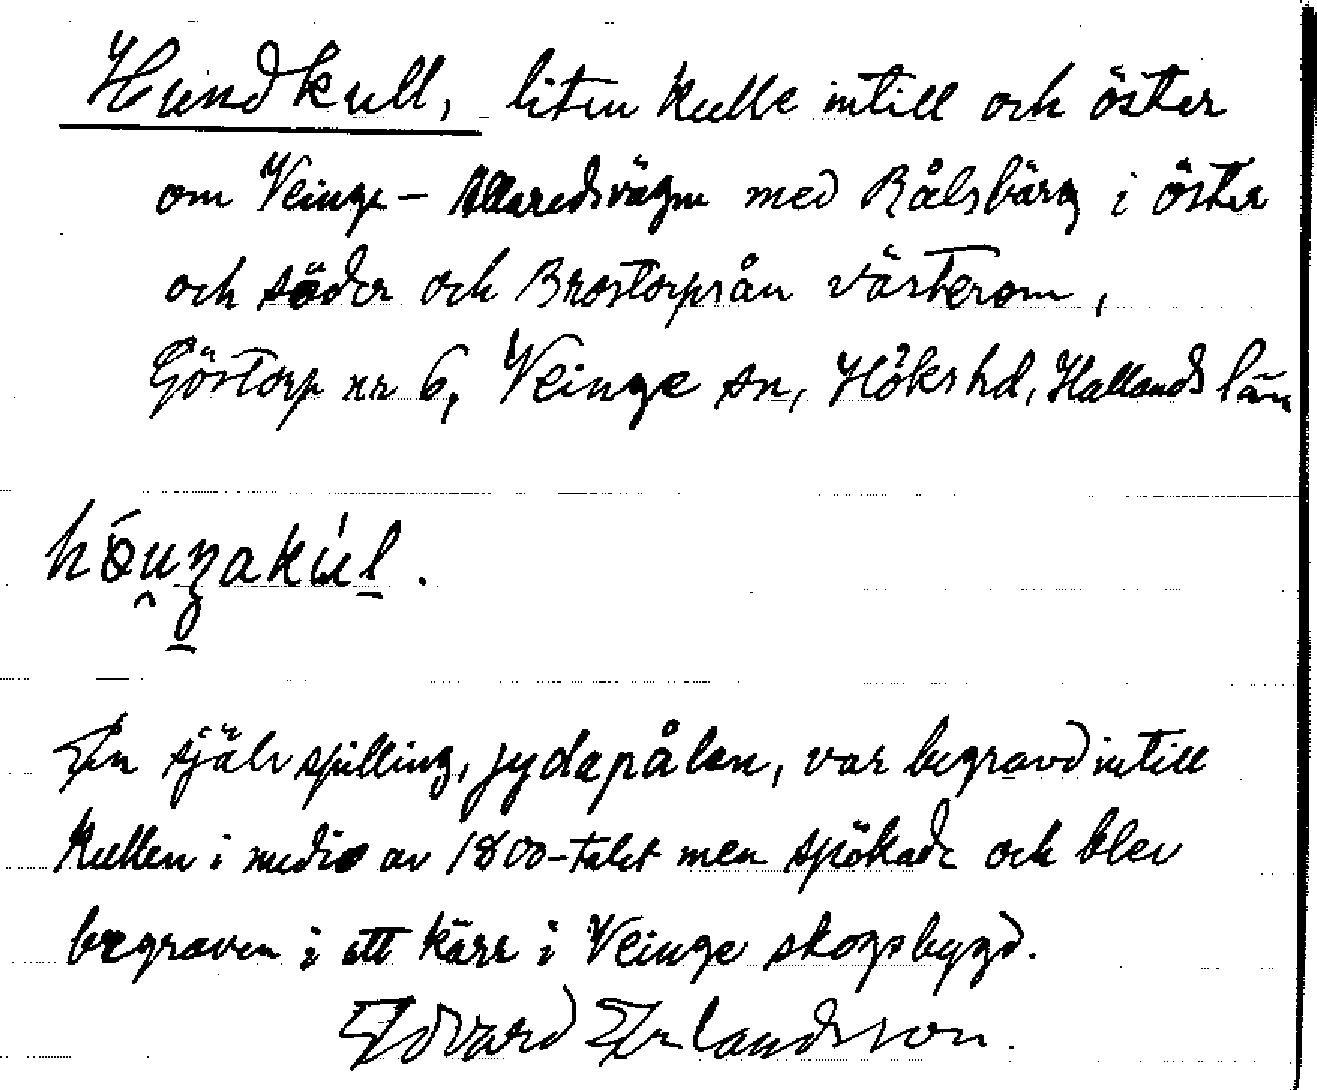 Hundkull, liten kulle intill och öster
om Veinge - Allaredsvägen med Bålsbärg i öster
och söder och Brostorpsån västerom,
Göstorp nr 6, Veinge sn, Höks hd, Hallands län
En självspilling, jydapålen, var begravd intill
kullen i medio av 1800-talet men spökade och blev
begraven i ett kärr i Veinge skogsbygd.
Edvard Erlandsson.